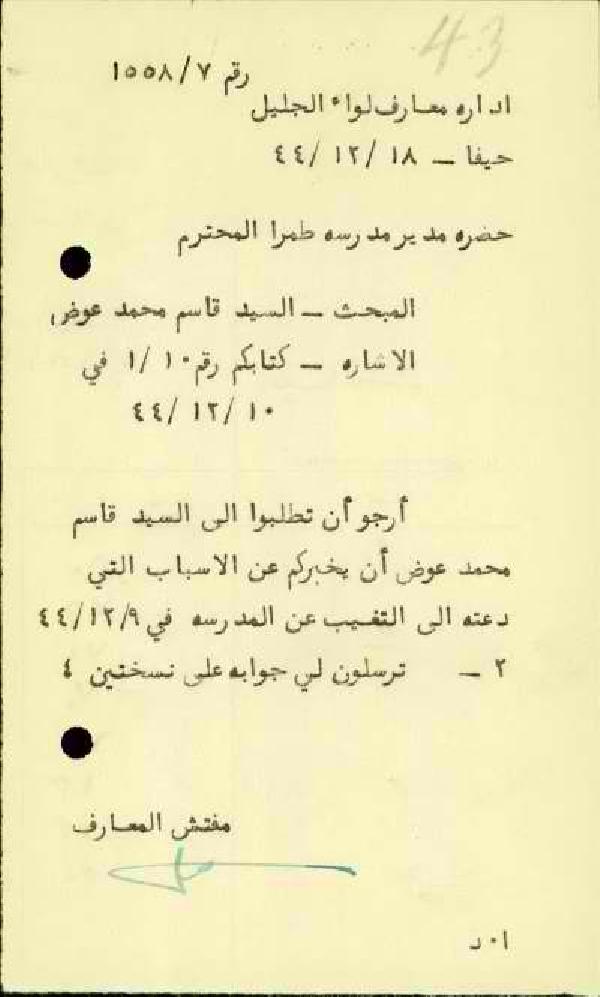 43
رقم ١٥٥٨/٧
اداره معارف لواء الجليل
حيفا – ١٨ /١٢ /٤٤
حضره مدير مدرسه طمرا المحترم
المبحث – السيد قاسم محمد عوض
الاشاره – كتابكم رقم ١٠ /١ في
١٠ /١٢ /٤٤
أرجو أن تطلبوا الى السيد قاسم
محمد عوض أن يخبركم عن الاسباب التي
دعته الى التغيب عن المدرسه في ٤٤/١٢/٩
٢ – ترسلون لي جوابه على نسختين ٤
مفتش المعارف
ا٠د